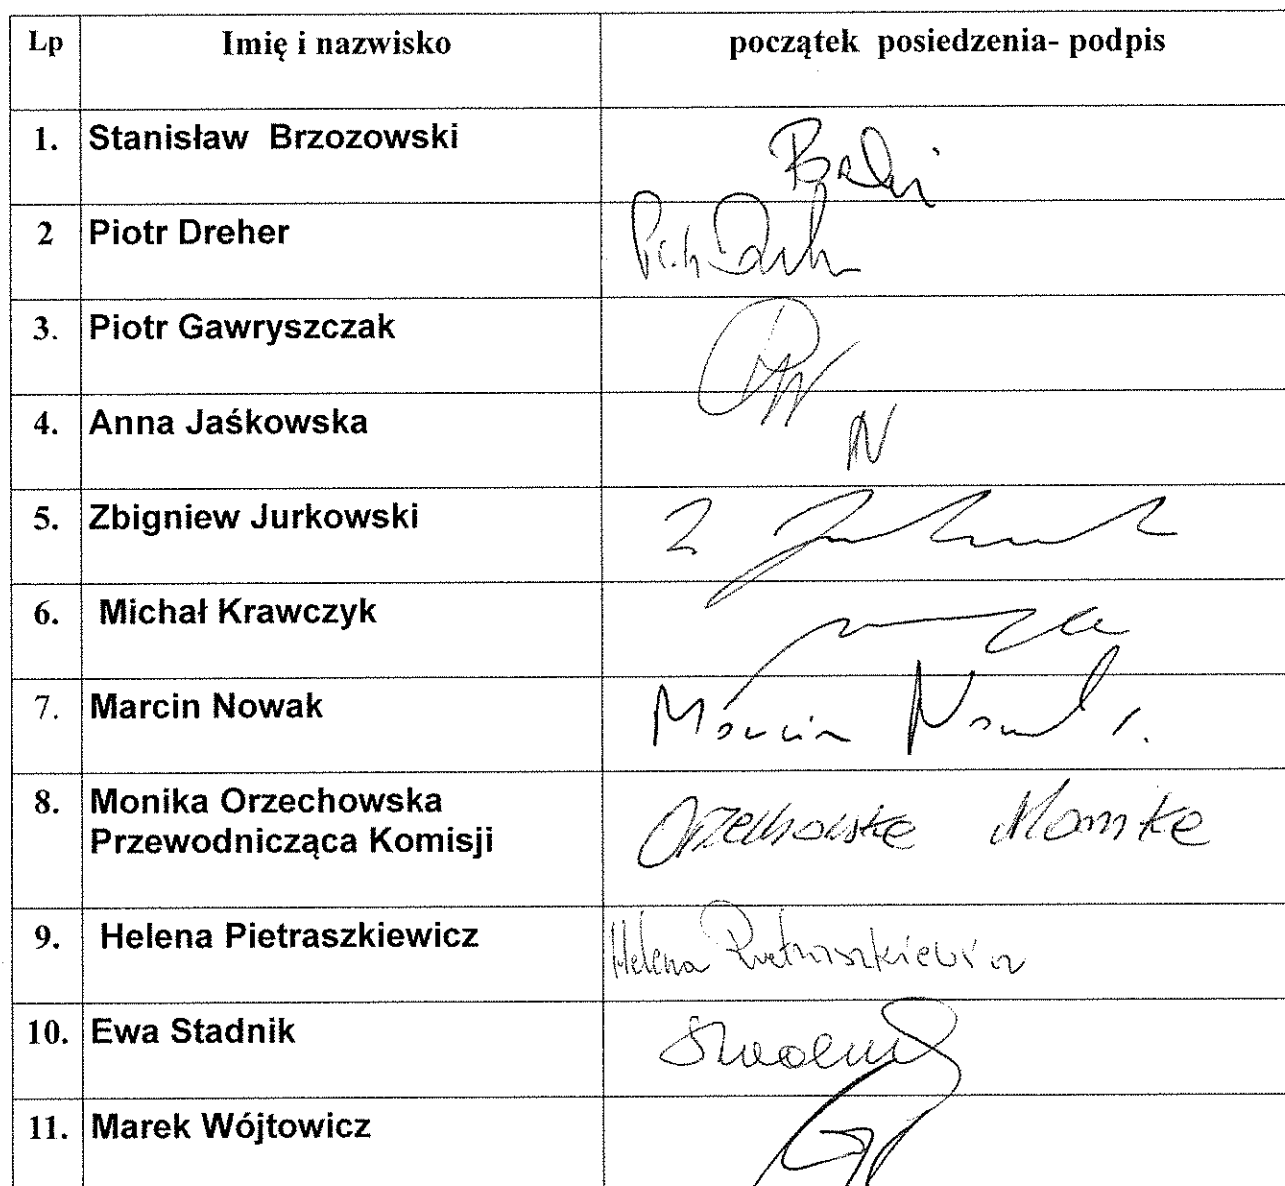 Lp Imię i nazwisko początek posiedzenia- podpis
1. Stanisław Brzozowski
2 Piotr Dreher
3. Piotr Gawryszczak
4. Anna Jaśkowska N
5. Zbigniew Jurkowski
6. Michał Krawczyk
7. Marcin Nowak Marcin Nowak
8. Monika Orzechowska Orzechowska Monika
Przewodnicząca Komisji
9. Helena Pietraszkiewicz Helena Pietraszkiewicz
10. Ewa Stadnik
11. Marek Wójtowicz